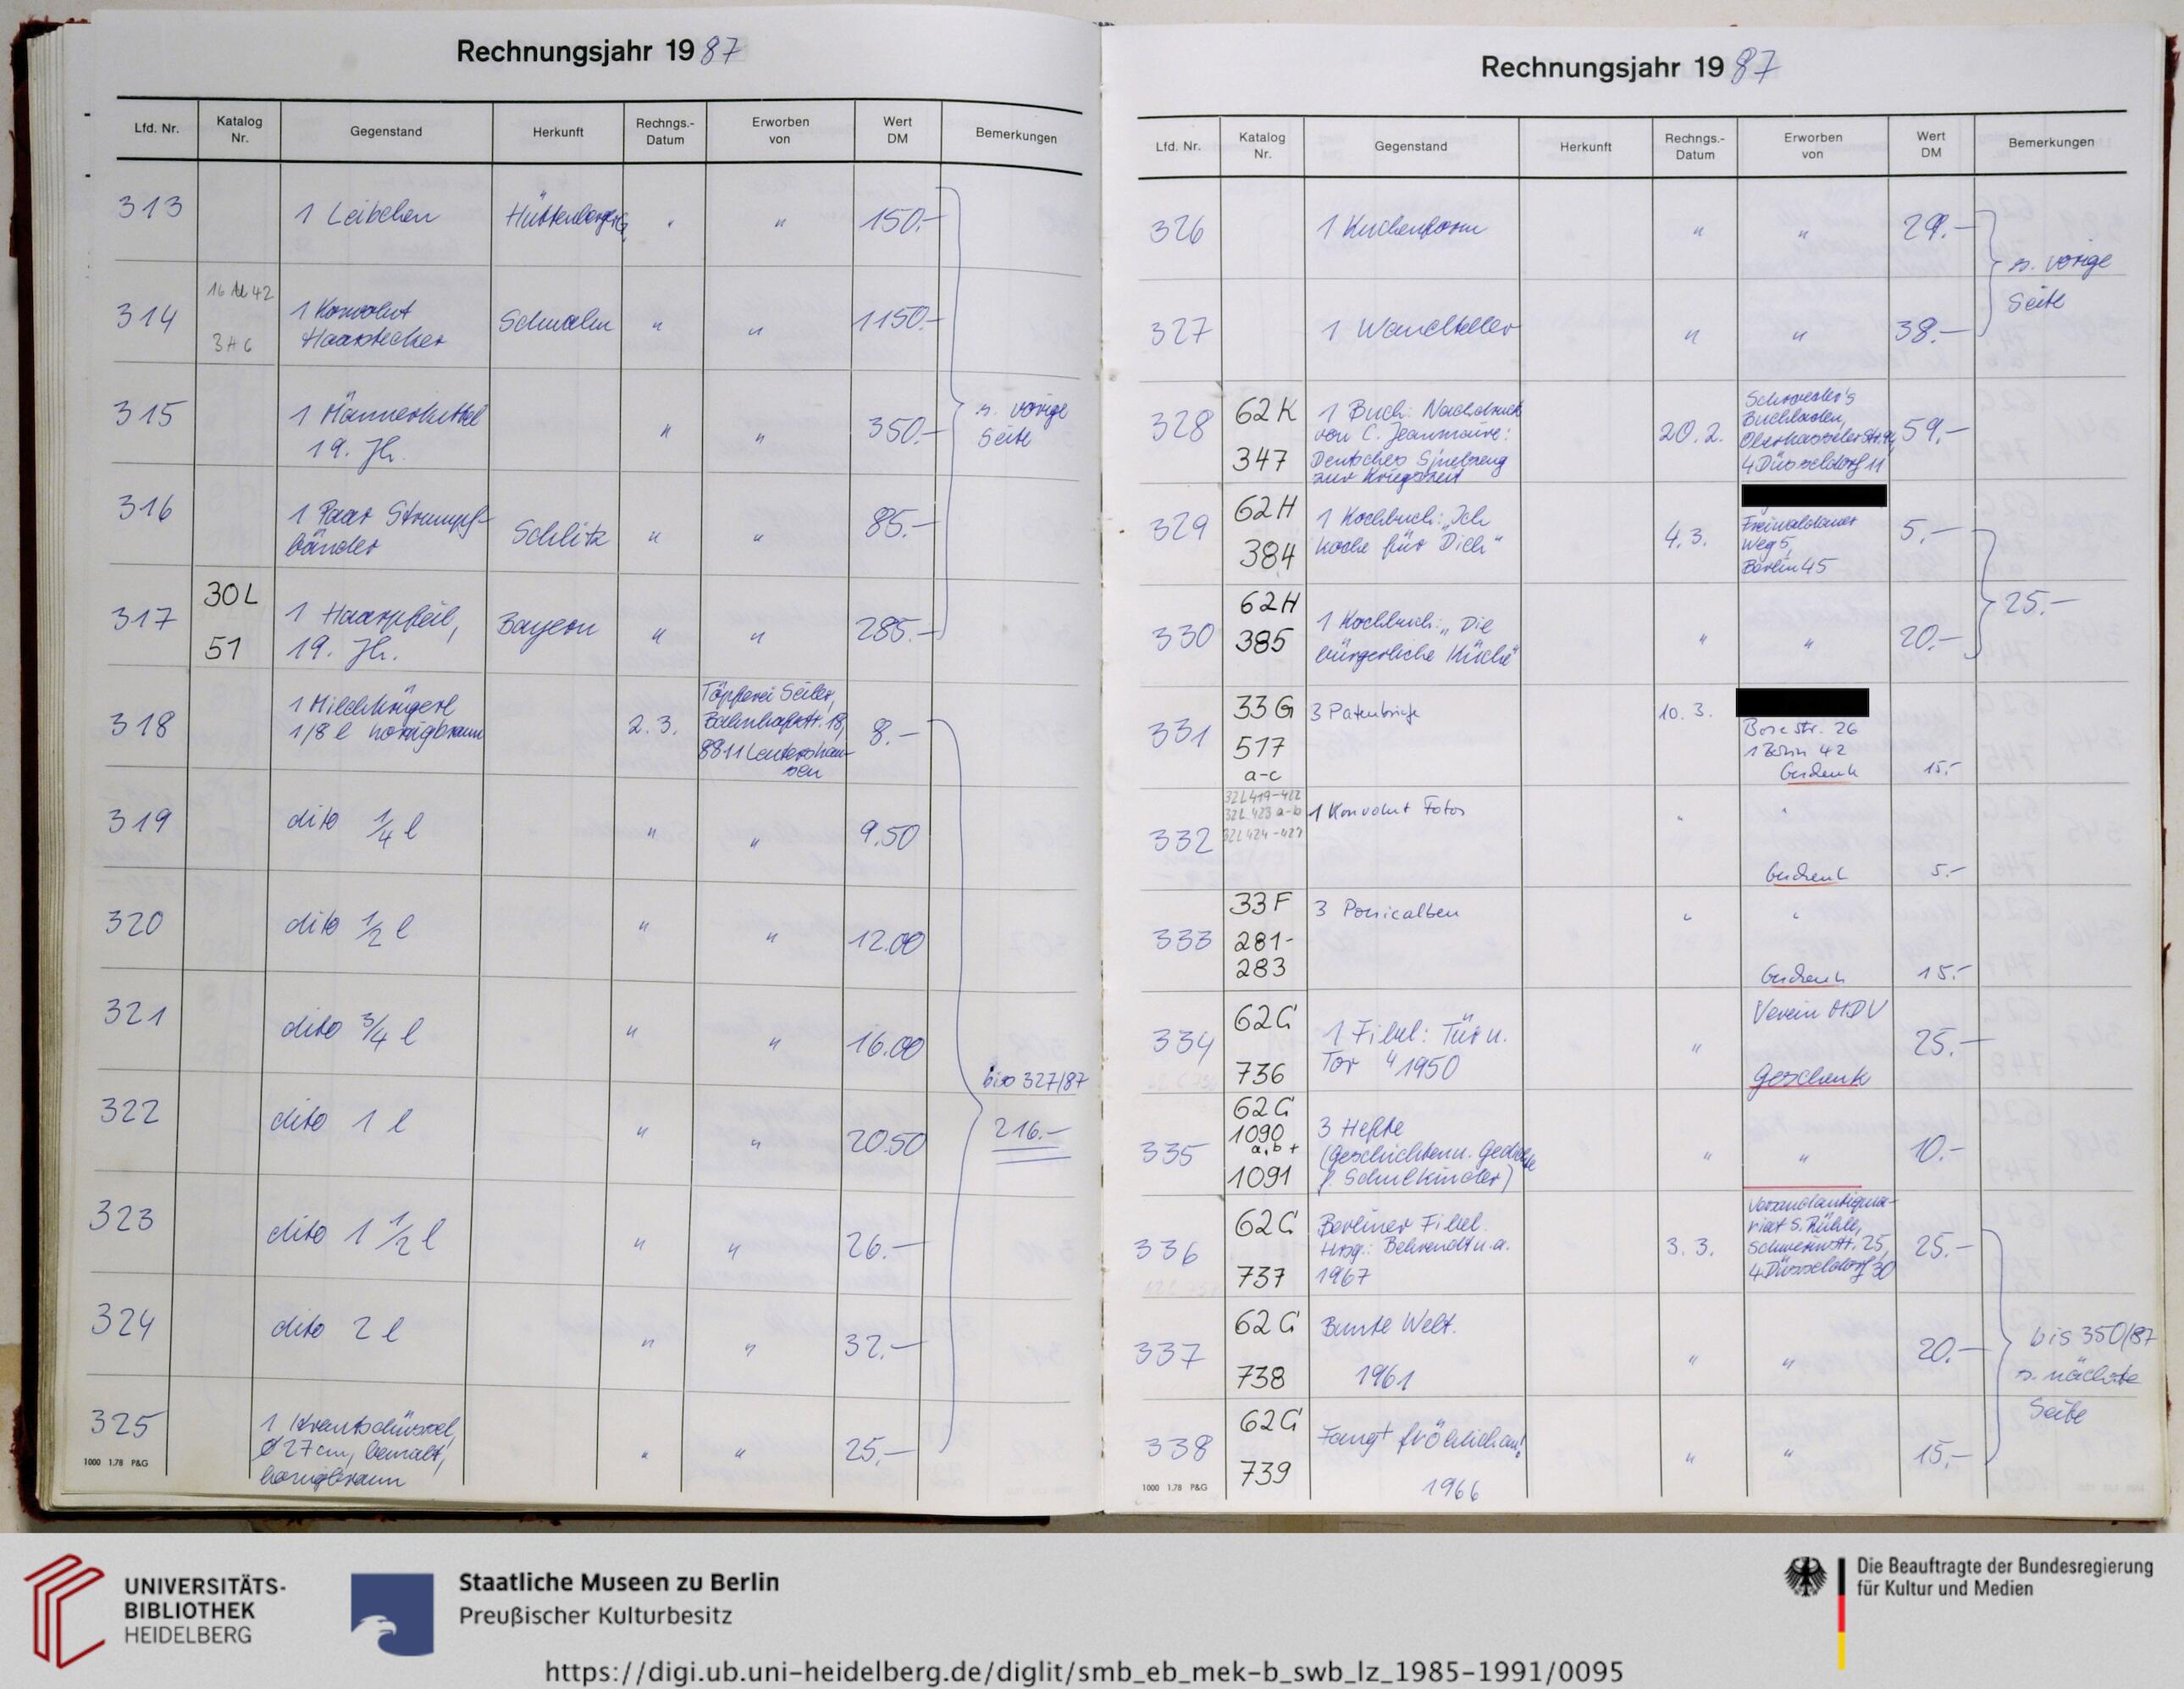 Rechnungsjahr 1987
Lfd. Nr. Katalog Nr. Gegenstand Herkunft Rechngs.-Datum Erworben von Wert DM Bemerkungen
313 1 Leibchen " " 150.-
314 1 Konvolut Schwalm " " 1150.-
Haarstecker
315 1 Männerkittel " " 350.- s. vorige
19. Jh. Seite
316 1 Paar Strumpf- Schlitz " " 85.-
bänder
317 30L 1 Haarpfeil, Bayern " " 285.-
51 19. Jh.
318 1 Milchkrügerl 2.3. Töpferei Seiler, 8.-
1/8 l honigbraun Bahnhofstr. 18,
8811 Leutershau-
sen
319 dito 1/4 l " " 9.50
320 dito 1/2 l " " 12.00
321 dito 3/4 l " " 16.00
bis 327/87
322 dito 1 l " " 20.50 216.-
323 dito 1 1/2 l " " 26.-
324 dito 2 l " " 32.-
325 1 Krautschüssel, " " 25.-
Ø 27cm, bemalt,
honigbraun
1000 1.78 P&G
Rechnungsjahr 1987
Lfd. Nr. Katalog Nr. Gegenstand Herkunft Rechngs.-Datum Erworben von Wert DM Bemerkungen
326 1 Kuchenform " " 29.- s. vorige
Seite
327 1 Wandteller " " 38.-
328 62K 1 Buch: Nachdruck 20.2. Schwester's 59.-
von C. Jeanmaire: Buchladen,
347 Deutsches Spielzeug Oberkasseler Str.
zur Kriegszeit 4 Düsseldorf 11
329 62H 1 Kochbuch: „Ich 4.3. Freiwaldauer 5.-
384 koche für Dich" Weg 5,
Berlin 45
25.-
330 62H 1 Kochbuch: „Die " " 20.-
385 bürgerliche Küche"
331 33G 3 Patenbriefe 10.3.
517 Bosestr. 26
a-c 1 Berlin 42
Geschenk 15.-
332 32L 419-422 1 Konvolut Fotos " "
32L 423 a-b
32L 424-427
Geschenk 5.-
333 33F 3 Poesiealben " "
281-
283 Geschenk 15.-
334 62G 1 Fibel: Tür u. " Verein MDV 25.-
736 Tor " 1950 Geschenk
335 62G 3 Hefte " " 10.-
1090 (Geschichten u. Gedichte
a,b + f. Schulkinder)
1091
336 62G Berliner Fibel. 3.3. Versandantiqua- 25.-
Hrsg.: Behrendt u.a. riat S. Rühle,
737 1967 Schwerinstr. 25,
4 Düsseldorf 30
337 62G Bunte Welt. " " 20.- bis 350/87
738 1961 s. nächste
Seite
338 62G Fangt fröhlich an! " " 15.-
739 1966
1000 1.78 P&G
UNIVERSITÄTS-
BIBLIOTHEK
HEIDELBERG
Staatliche Museen zu Berlin
Preußischer Kulturbesitz
Die Beauftragte der Bundesregierung
für Kultur und Medien
https://digi.ub.uni-heidelberg.de/diglit/smb_eb_mek-b_swb_lz_1985-1991/0095